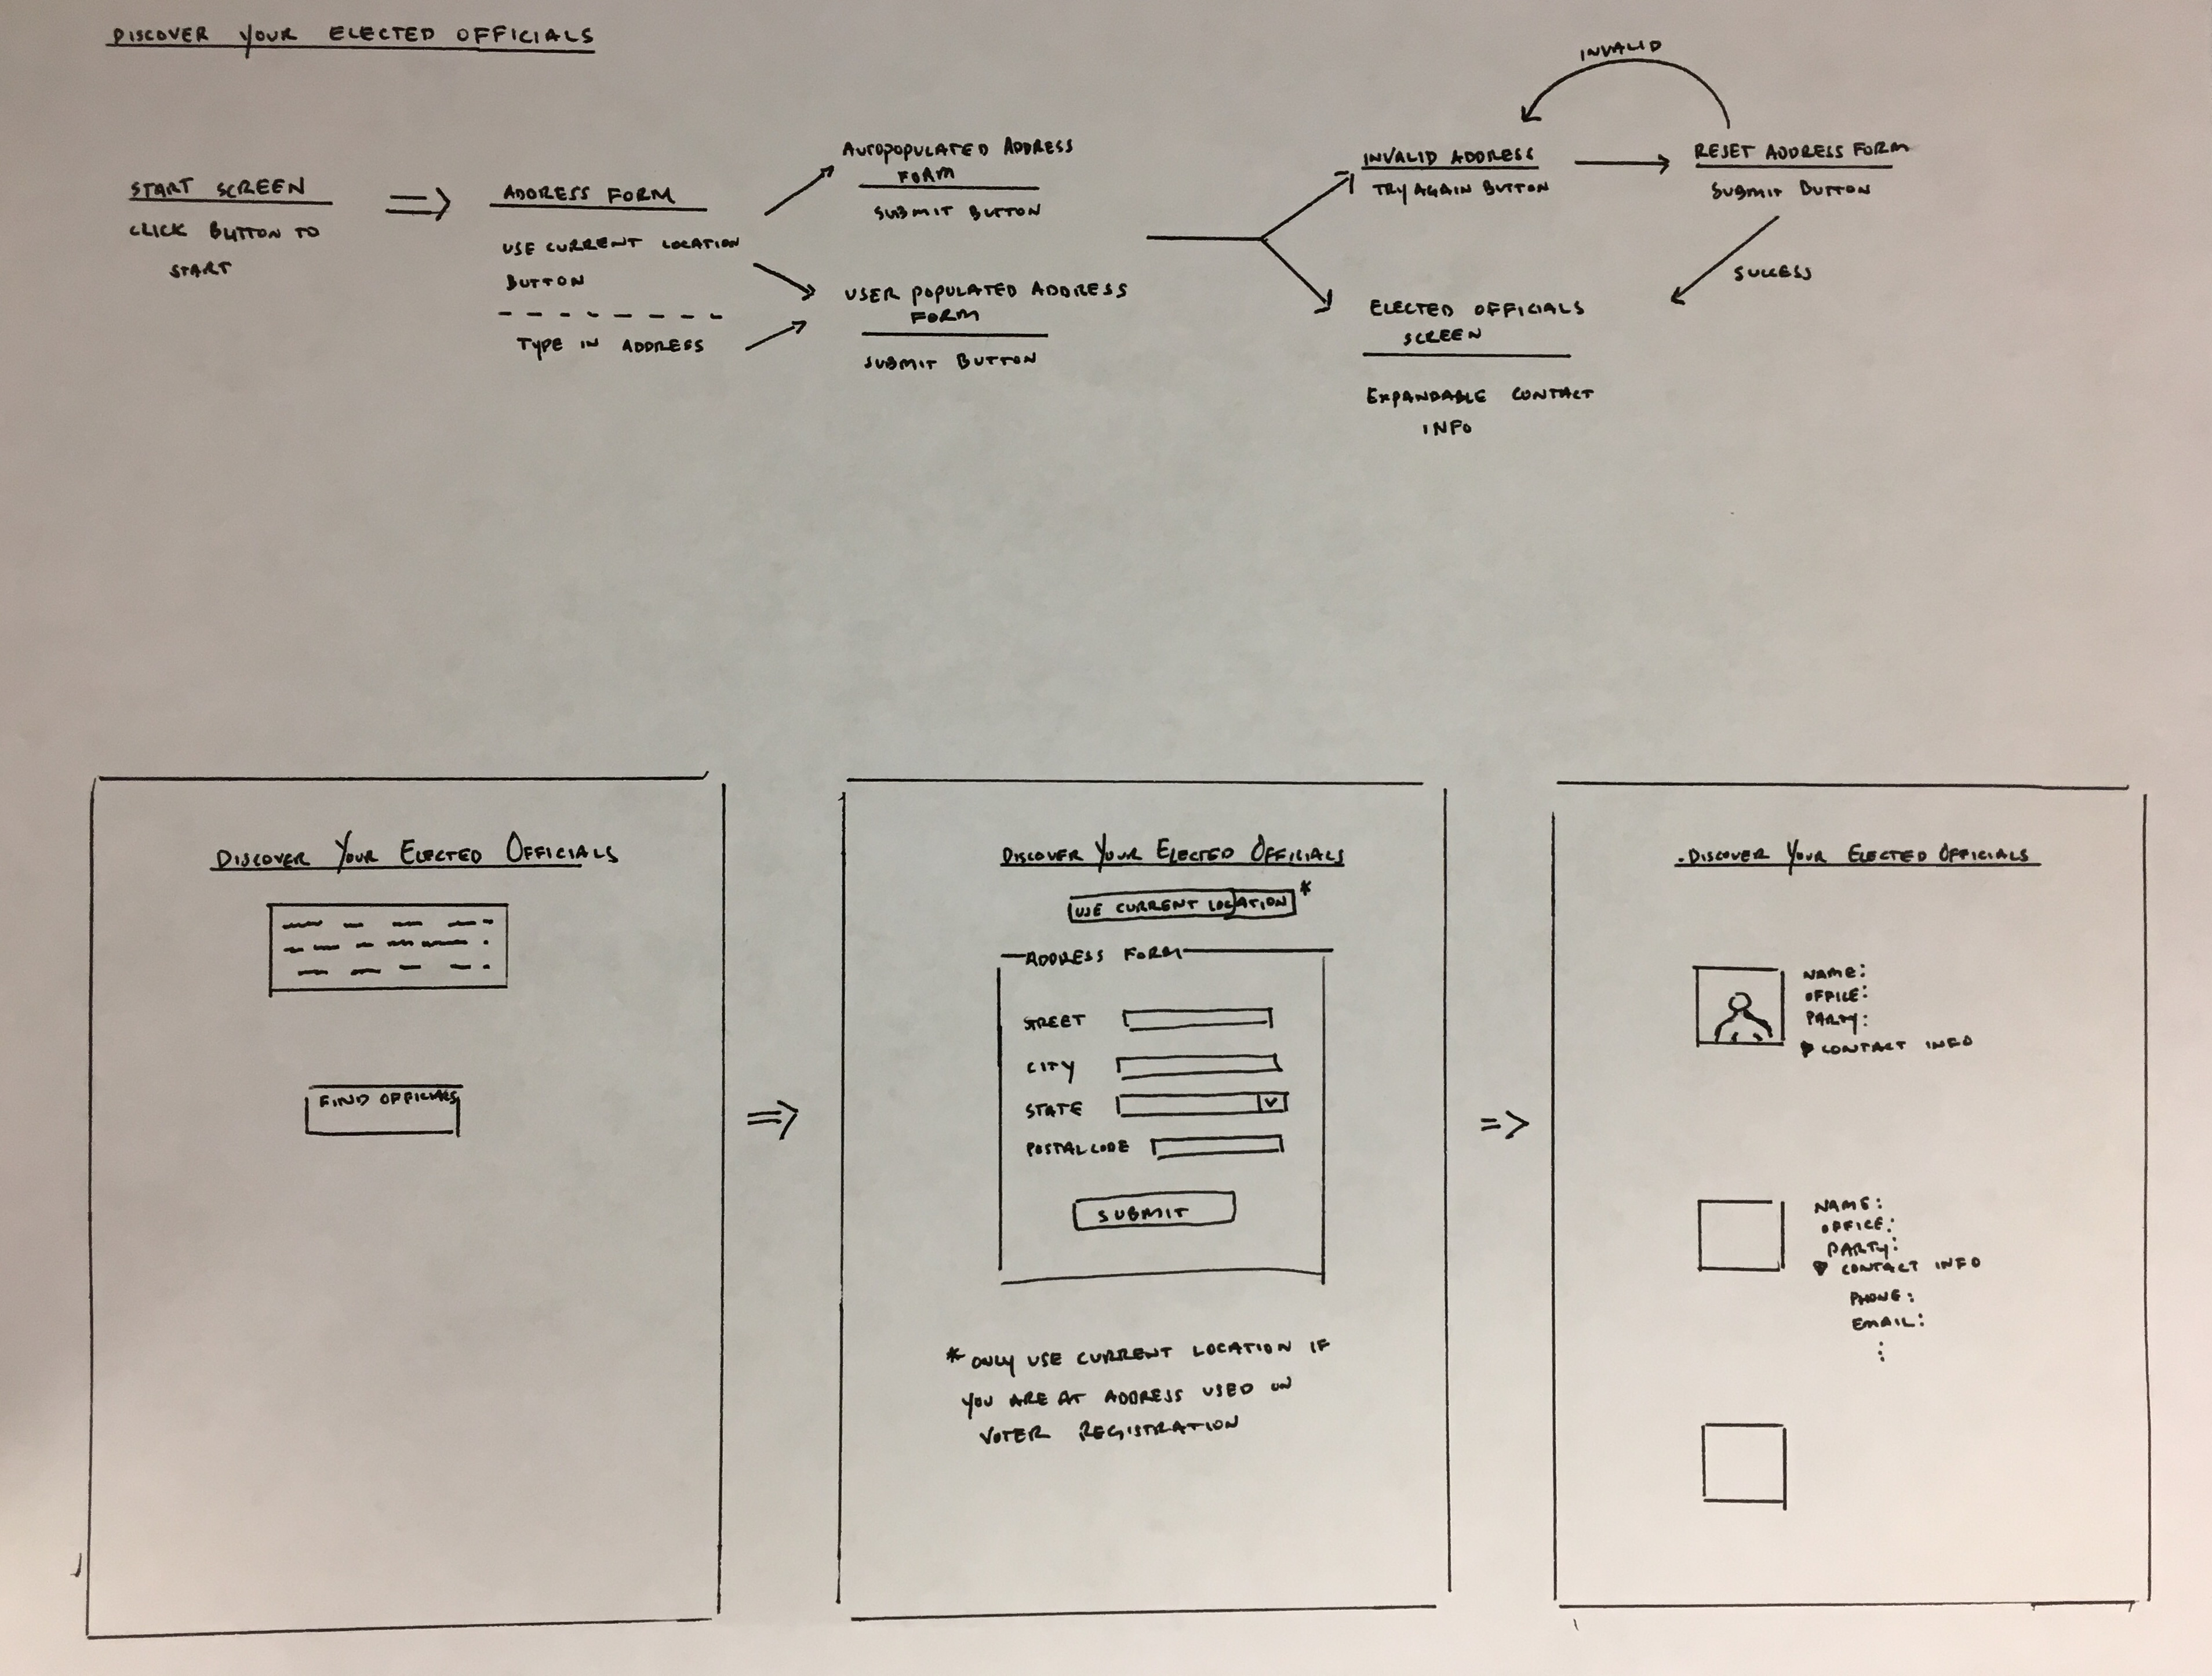 DISCOVER YOUR ELECTED OFFICIALS
START SCREEN
CLICK BUTTON TO
START
ADDRESS FORM
USE CURRENT LOCATION
BUTTON
TYPE IN ADDRESS
AUTOPOPULATED ADDRESS
FORM
SUBMIT BUTTON
USER POPULATED ADDRESS
FORM
SUBMIT BUTTON
INVALID
INVALID ADDRESS
TRY AGAIN BUTTON
RESET ADDRESS FORM
SUBMIT BUTTON
SUCCESS
ELECTED OFFICIALS
SCREEN
EXPANDABLE CONTACT
INFO
DISCOVER YOUR ELECTED OFFICIALS
FIND OFFICIALS
DISCOVER YOUR ELECTED OFFICIALS
USE CURRENT LOCATION *
ADDRESS FORM
STREET
CITY
STATE
POSTAL CODE
SUBMIT
* ONLY USE CURRENT LOCATION IF
YOU ARE AT ADDRESS USED ON
VOTER REGISTRATION
DISCOVER YOUR ELECTED OFFICIALS
NAME:
OFFICE:
PARTY:
CONTACT INFO
NAME:
OFFICE:
PARTY:
CONTACT INFO
PHONE:
EMAIL: